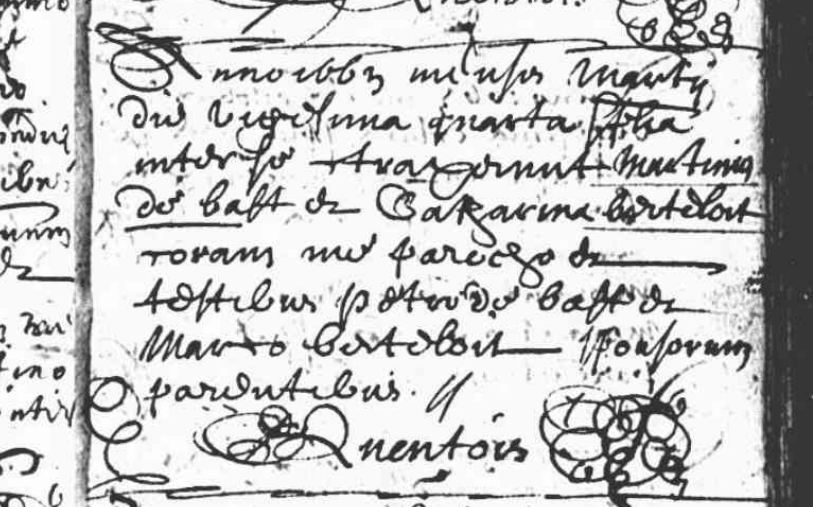 Anno 1662 mensis Martij
die vigesima quarta sp͞slia
inter se contraxerunt Martinus
de bast et Catharina berteloit
coram me parocho et
testibus petro de bast et
Marco berteloit sponsorum
parentibus.
Quentois